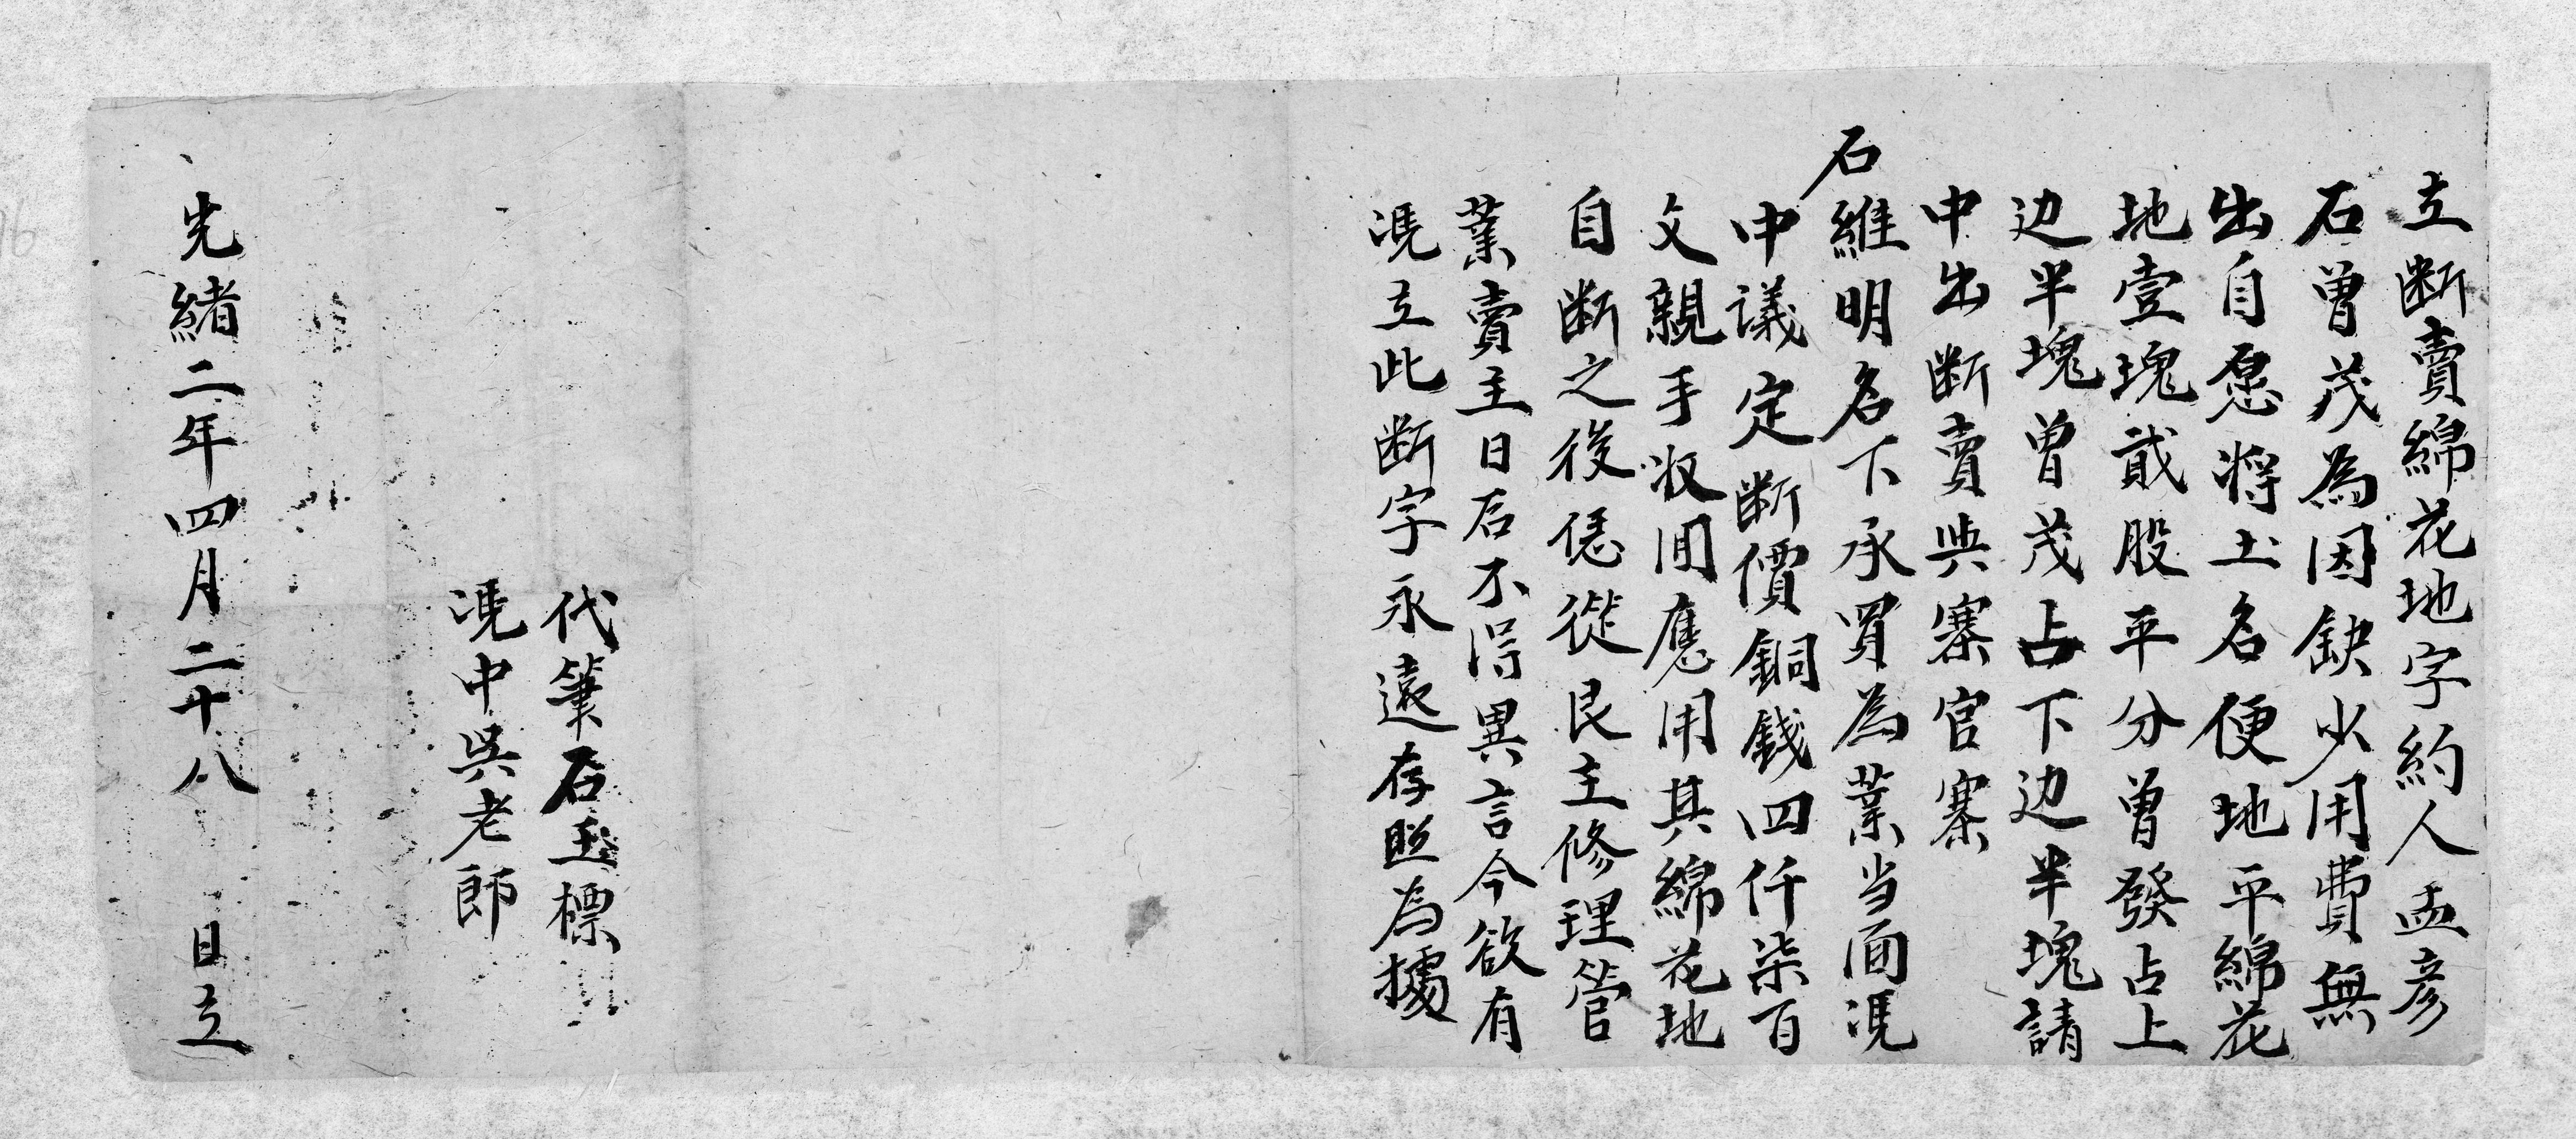 立断賣綿花地字約人孟彦
石曽茂為因缺少用費無
出自愿将土名便地平綿花
地壹塊貮股平分曽發占上
边半塊曽茂占下边半塊請
中出断賣與寨官寨
石維明名下承買為業当面馮
中議定断價銅錢四仟柒百
文親手收用應用其綿花地
自断之後恁從艮主修理管
業賣主日后不淂異言今欲有
馮立此断字永遠存照為據
代筆石玉標
馮中吳老郎
光緒二年四月二十八日立